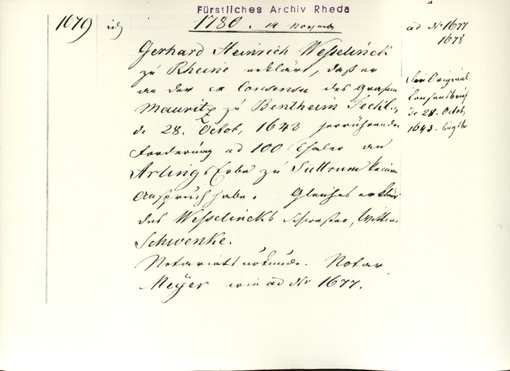 Fürstliches Archiv Rheda
1679 1780. 14 Novemb ad Nr 1677
1678
Gerhard Heinrich Wesselinck
zu Rheine erklärt, daß er
an der ex Consensu des Grafen
Mauritz zu Bentheim Teckl.
de 28. Octob. 1643 herrührenden
Forderung ad 100 Thaler an
Arlings Erbe zu Suttrum keinen
Anspruch habe. Gleiches erklärt
des Wesselincks Schwester, Wittwe
Schwenke.
Notariatsurkunde. Notar
Meyer wie ad Nr 1677.
Der Original
Consensbrief
de 28. Octob.
1643.